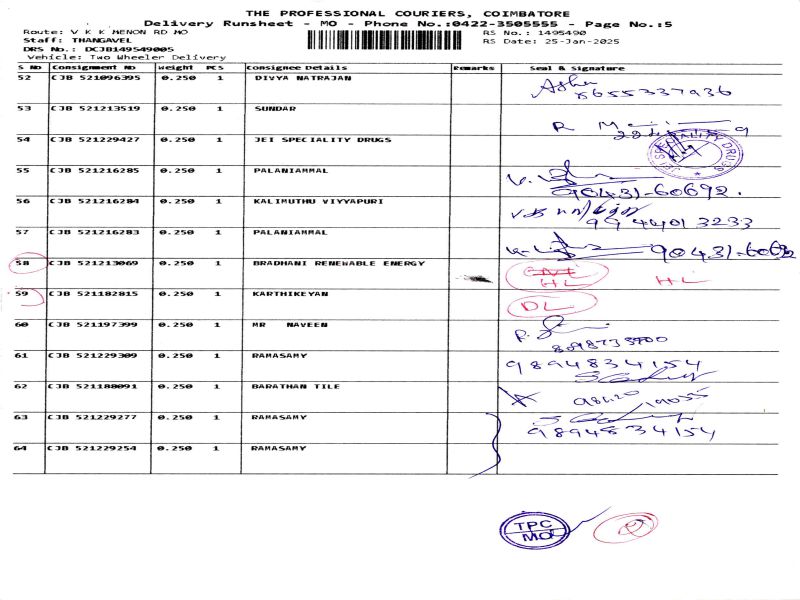 THE PROFESSIONAL COURIERS, COIMBATORE
Delivery Runsheet - MO - Phone No.:0422-3505555 - Page No.:5
Route: V K K MENON RD MO RS No.: 1495490
Staff: THANGAVEL RS Date: 25-Jan-2025
DRS No.: DCJB149549005
Vehicle: Two Wheeler Delivery
S No Consignment No Weight PCS Consignee Details Remarks Seal & Signature
52 CJB 521096395 0.250 1 DIVYA NATRAJAN
53 CJB 521213519 0.250 1 SUNDAR
54 CJB 521229427 0.250 1 JEI SPECIALITY DRUGS
55 CJB 521216285 0.250 1 PALANIAMMAL
90431-60692.
56 CJB 521216284 0.250 1 KALIMUTHU VIYYAPURI
9944013233
57 CJB 521216283 0.250 1 PALANIAMMAL 90431-60692
58 CJB 521213069 0.250 1 BRADHANI RENEWABLE ENERGY
HL HL
59 CJB 521182815 0.250 1 KARTHIKEYAN DL
60 CJB 521197399 0.250 1 MR NAVEEN
61 CJB 521229309 0.250 1 RAMASAMY 9894834154
62 CJB 521188091 0.250 1 BARATHAN TILE
63 CJB 521229277 0.250 1 RAMASAMY 9894834154
64 CJB 521229254 0.250 1 RAMASAMY
TPC
MO